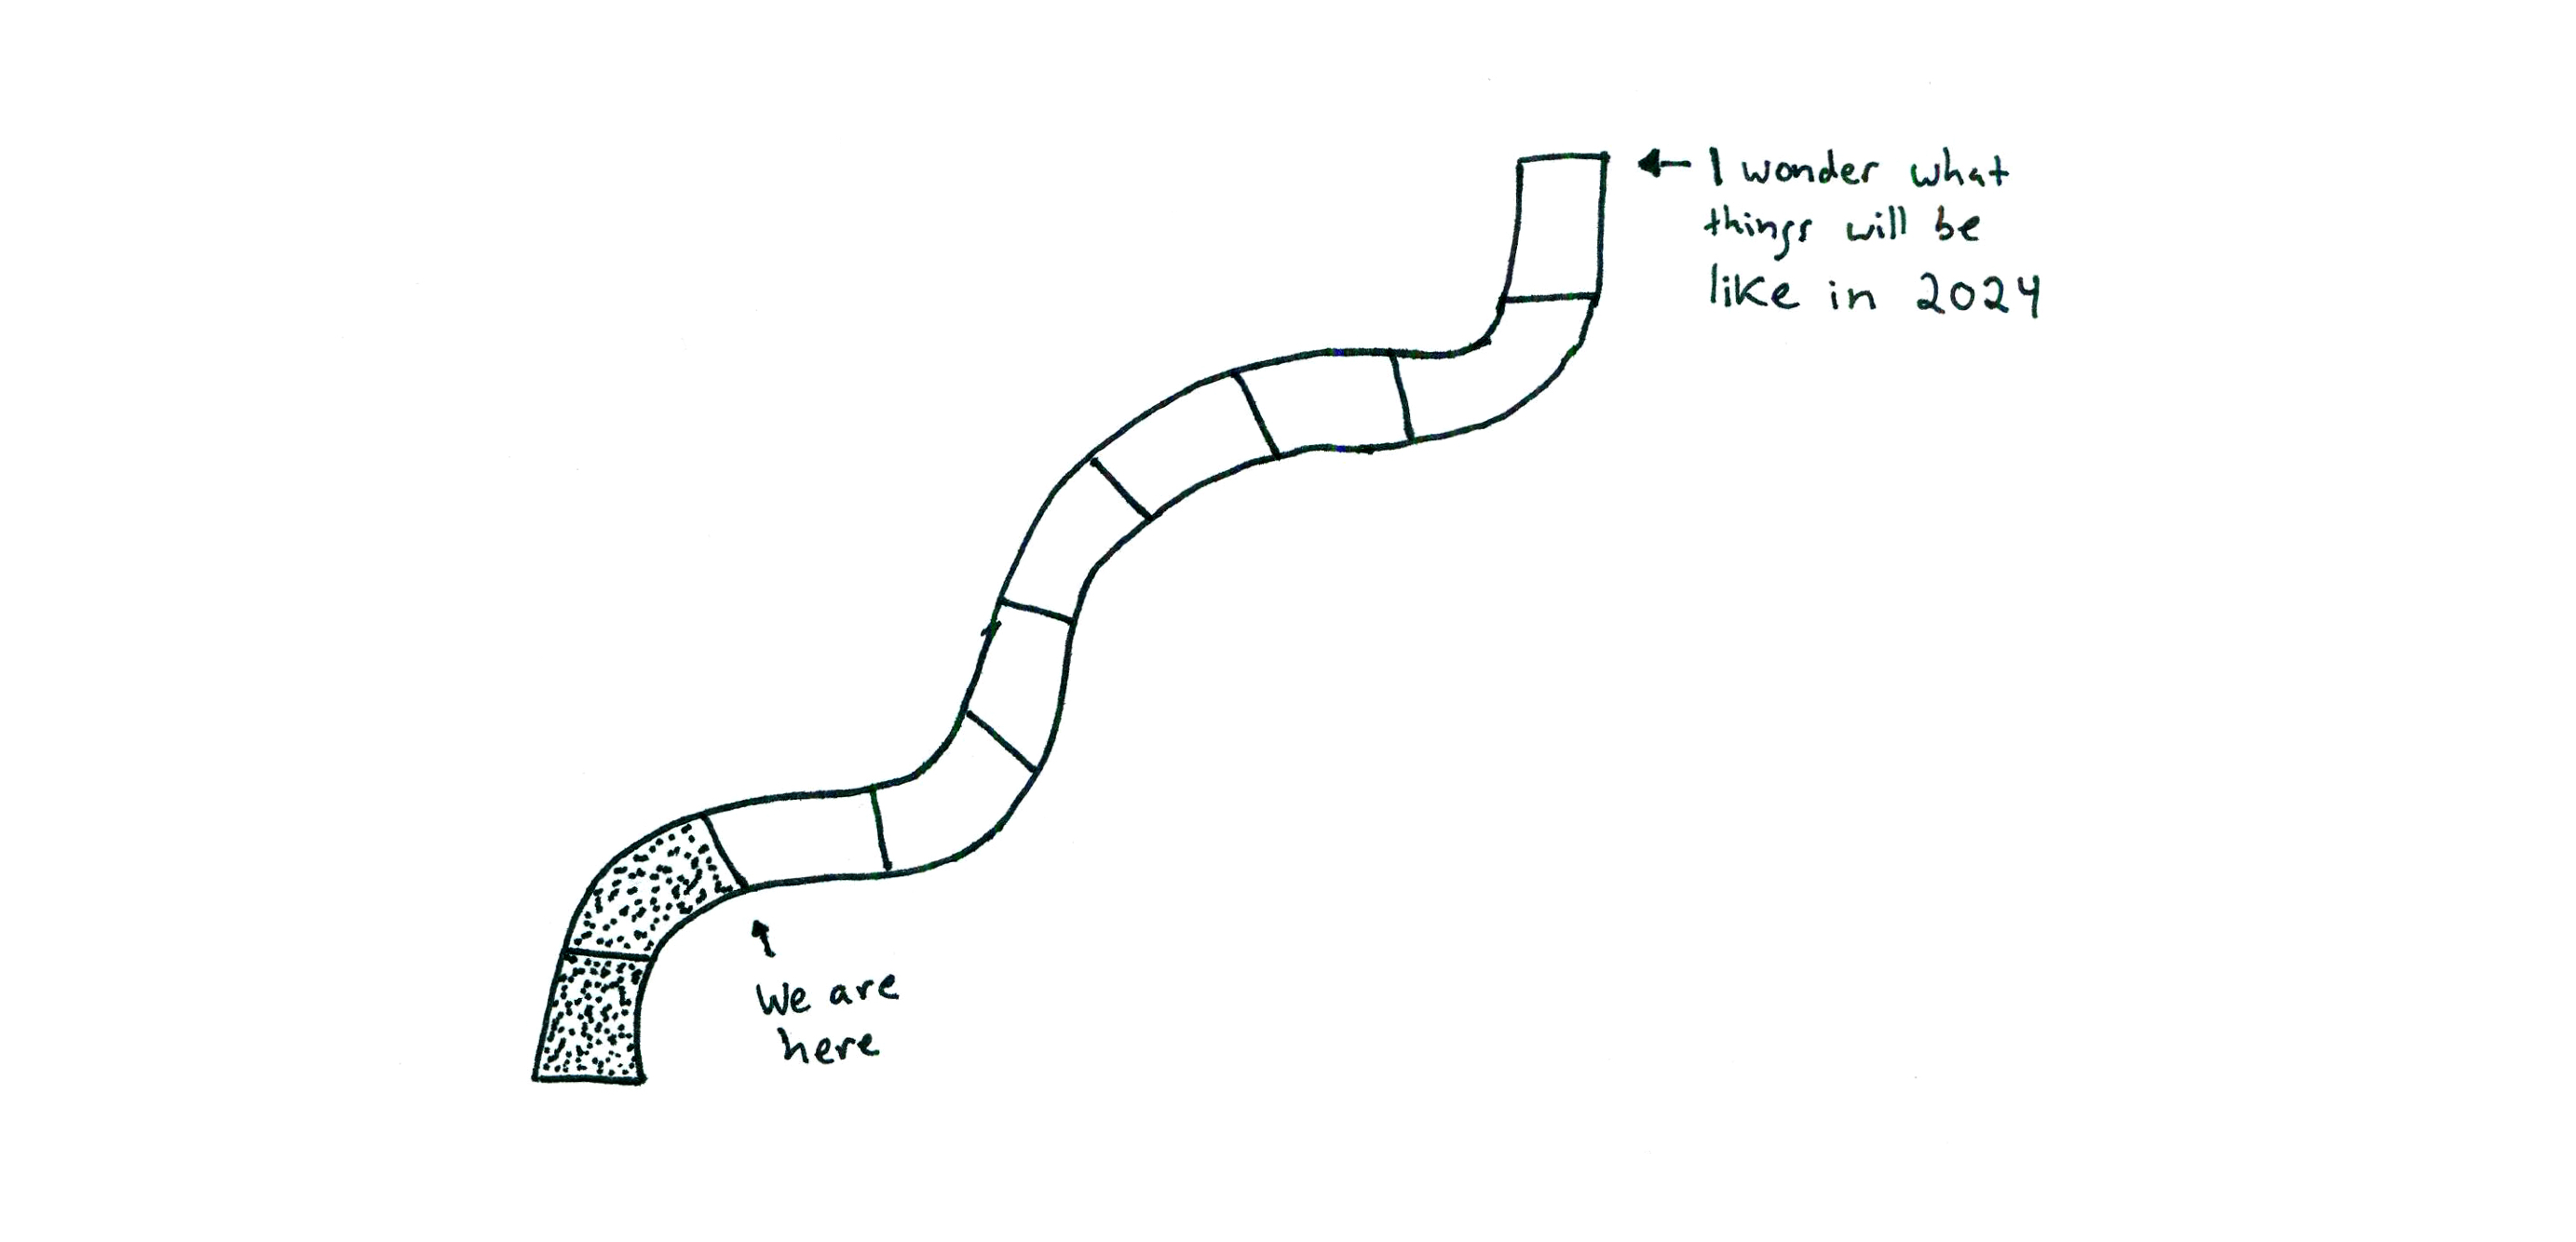 I wonder what
things will be
like in 2024
We are
here